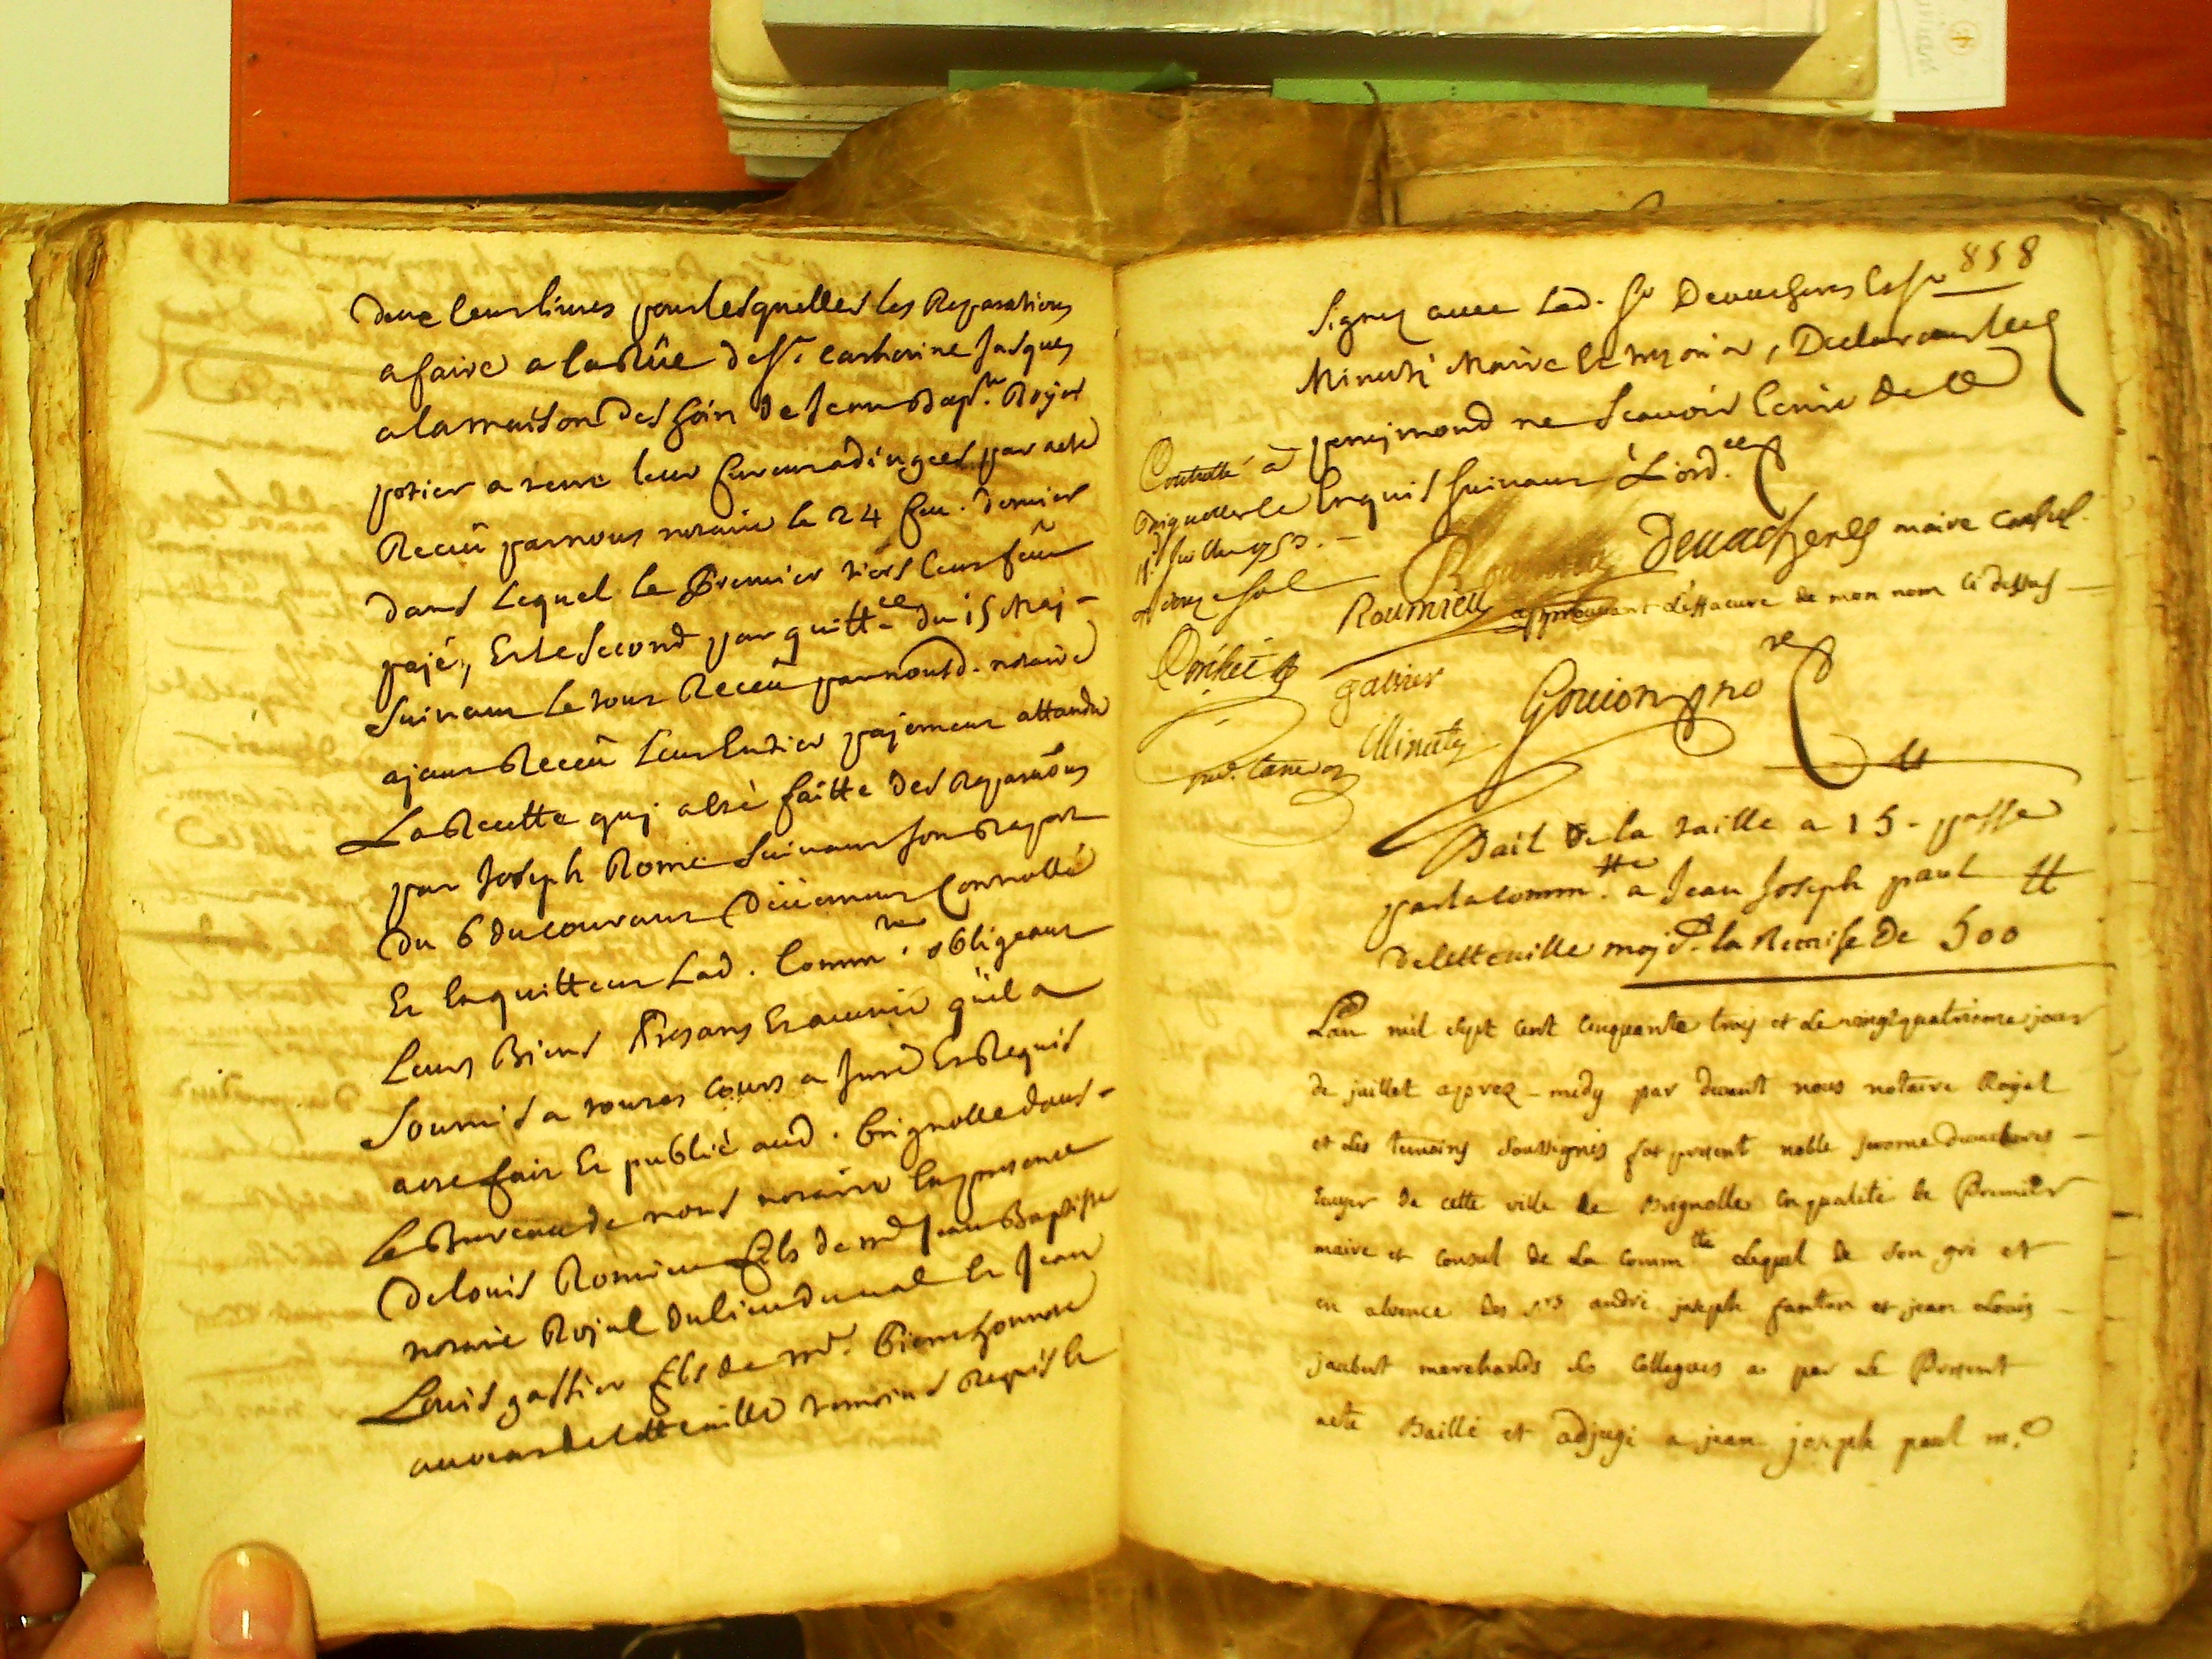 livres pour lesquelles les Reparations
a faire a la Rüe de Ste. Catherine Jusques
a la maison des hoirs de Jean Bapte. Royer
potier a terre leur furent adiugees par acte
Receü par nous notaire le 24 feu. dernier
dans Lequel le Premier tiers leur feüt
payé, Et le Second par quittce. du 15 May -
suivant le tout Receü par nousd. notaire
ayant Receü Leur Entier payement attandu
La Recette quy a été faitte des Reparaõns
par Joseph Rome suivant son Raport
du 6 du courant Düement Controllé
Et En quittent Lad. Commté. obligeant
Leurs Biens Presans Et auenir qüil a
Soumis a toutes cours a Juré Et Requis
acte fait Et publié aud. brignolle dans -
le Bureau de nous notaire En presence
de Louis Romieu fils de me Jean Baptiste
notaire Royal du lieu du ual Et Jean
Louis gassier fils de mr. Pierre honnore
de cette uille temoins Requis Et
858
Signez avec Lad. Sr Devacheres
Minuty Maire Et temoins, Declarant
ne Scauoir Ecrire de ce
Enquis suivant L'ord.ce
Controllé à
Brignolle le
juillet 1753. -
Devachenes maire consul.
Roumieu approuvant l'effacure de mon nom ci dessus
gassier
Minuty
Goujon no re
Bail de la taille a 15 - passé
par la Commté. a Jean Joseph paul
de cette uille moj.t la Remise de 500
L'an mil sept cent cinquante trois et le vingtquatrieme jour
de juillet aprez - midy par devant nous notaire Royal
et les temoins soussignés fut present noble jerome devacheres -
Ecuyer de cette ville de Brignolle En qualité de Premier
maire et consul de La Commté Lequel de son gré et
en absence des srs andré joseph fanton et jean Louis -
jaubert marchands ses Collegues a par Le Present
acte Baillé et adjugé a jean joseph paul m.d